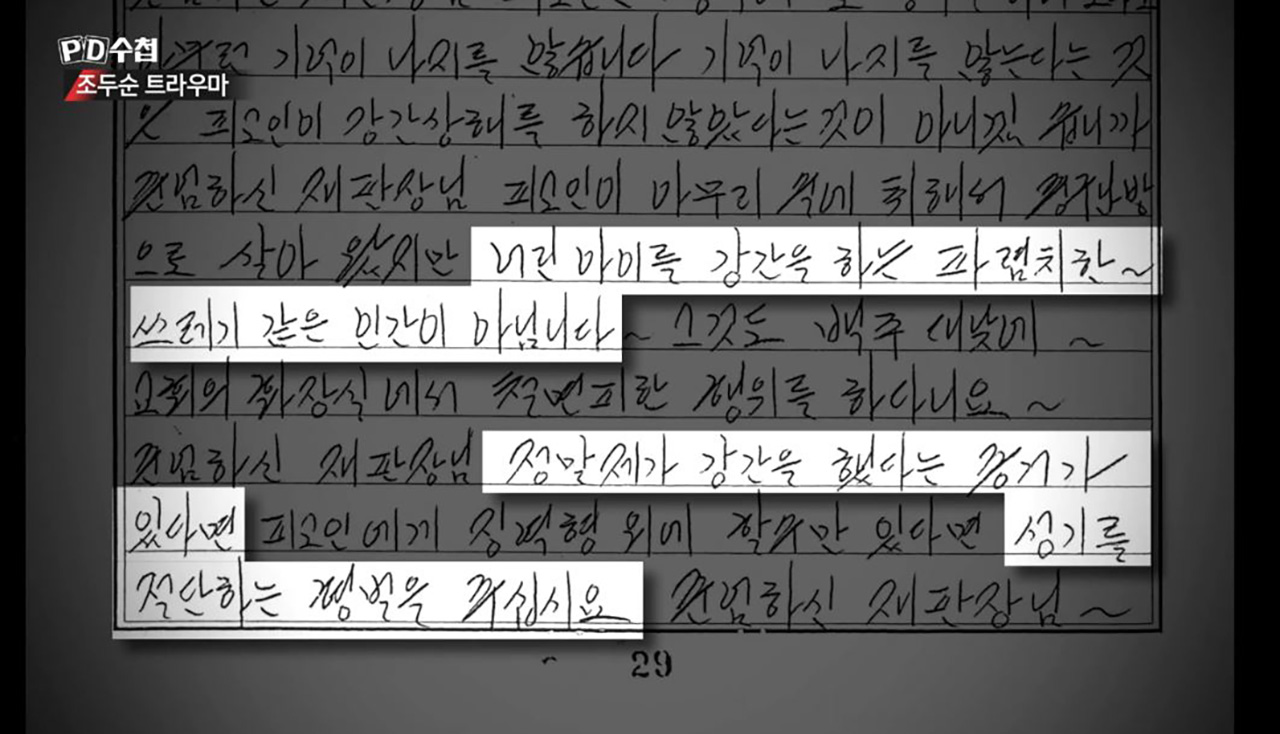 PD수첩
조두순 트라우마
기억이 나지를 않습니다 기억이 나지를 않는다는 것
은 피고인이 강간상해를 하지 않았다는것이 아니겠 습니까
존엄하신 재판장님 피고인이 아무리 술에 취해서 엉망
으로 살아 왔지만 어린 아이를 강간을 하는 파렴치한~
쓰레기 같은 인간이 아닙니다 ~ 그것도 백주 대낮에 ~
교회의 화장실에서 철면피한 행위를 하다니요 ~
존엄하신 재판장님 정말제가 강간을 했다는 증거가
있다면 피고인에게 징역형 외에 할수만 있다면 성기를
절단하는 형벌을 주십시요 존엄하신 재판장님 ~
29